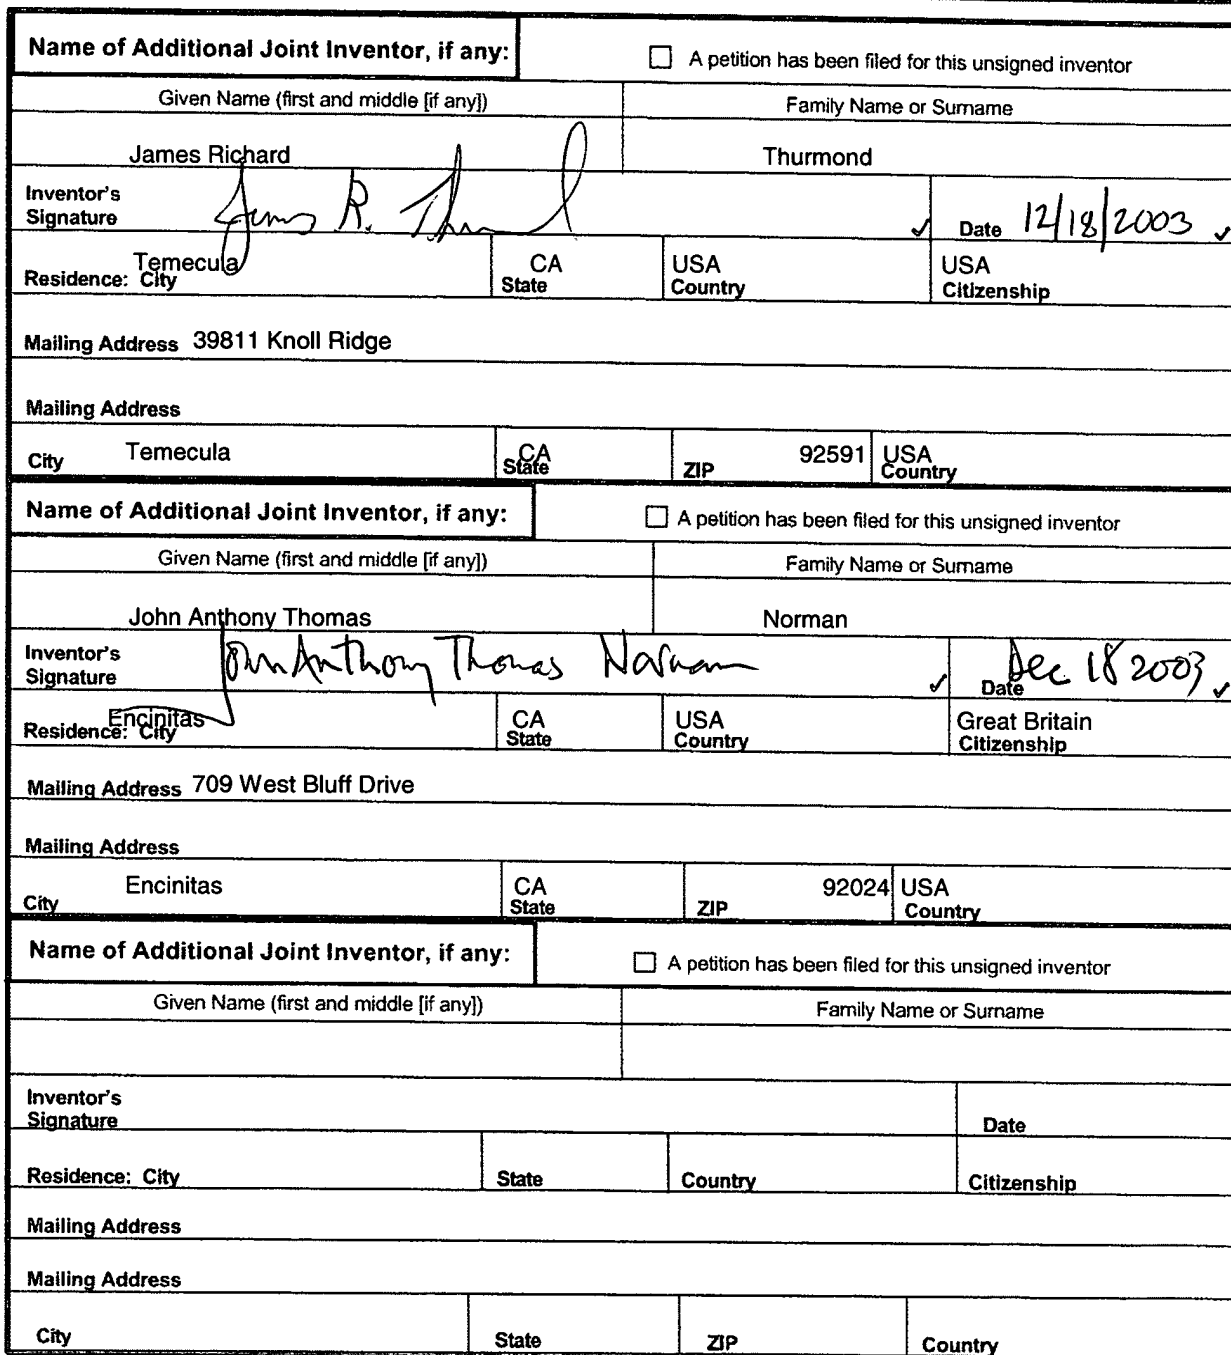 Name of Additional Joint Inventor, if any: ☐ A petition has been filed for this unsigned inventor
Given Name (first and middle [if any]) Family Name or Surname
James Richard Thurmond
Inventor's
Signature James R. Thurmond ✓ Date 12/18/2003 ✓
Temecula CA USA USA
Residence: City State Country Citizenship
Mailing Address 39811 Knoll Ridge
Mailing Address
City Temecula CA State ZIP 92591 USA Country
Name of Additional Joint Inventor, if any: ☐ A petition has been filed for this unsigned inventor
Given Name (first and middle [if any]) Family Name or Surname
John Anthony Thomas Norman
Inventor's
Signature John Anthony Thomas Norman ✓ Date Dec 18 2003 ✓
Encinitas CA USA Great Britain
Residence: City State Country Citizenship
Mailing Address 709 West Bluff Drive
Mailing Address
Encinitas CA 92024 USA
City State ZIP Country
Name of Additional Joint Inventor, if any: ☐ A petition has been filed for this unsigned inventor
Given Name (first and middle [if any]) Family Name or Surname
Inventor's
Signature Date
Residence: City State Country Citizenship
Mailing Address
Mailing Address
City State ZIP Country